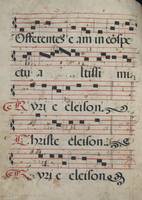 Offerentes eam in cōspe
ctu altissimi.
Kyri e eleison.
Christe eleison.
Kyri e eleison